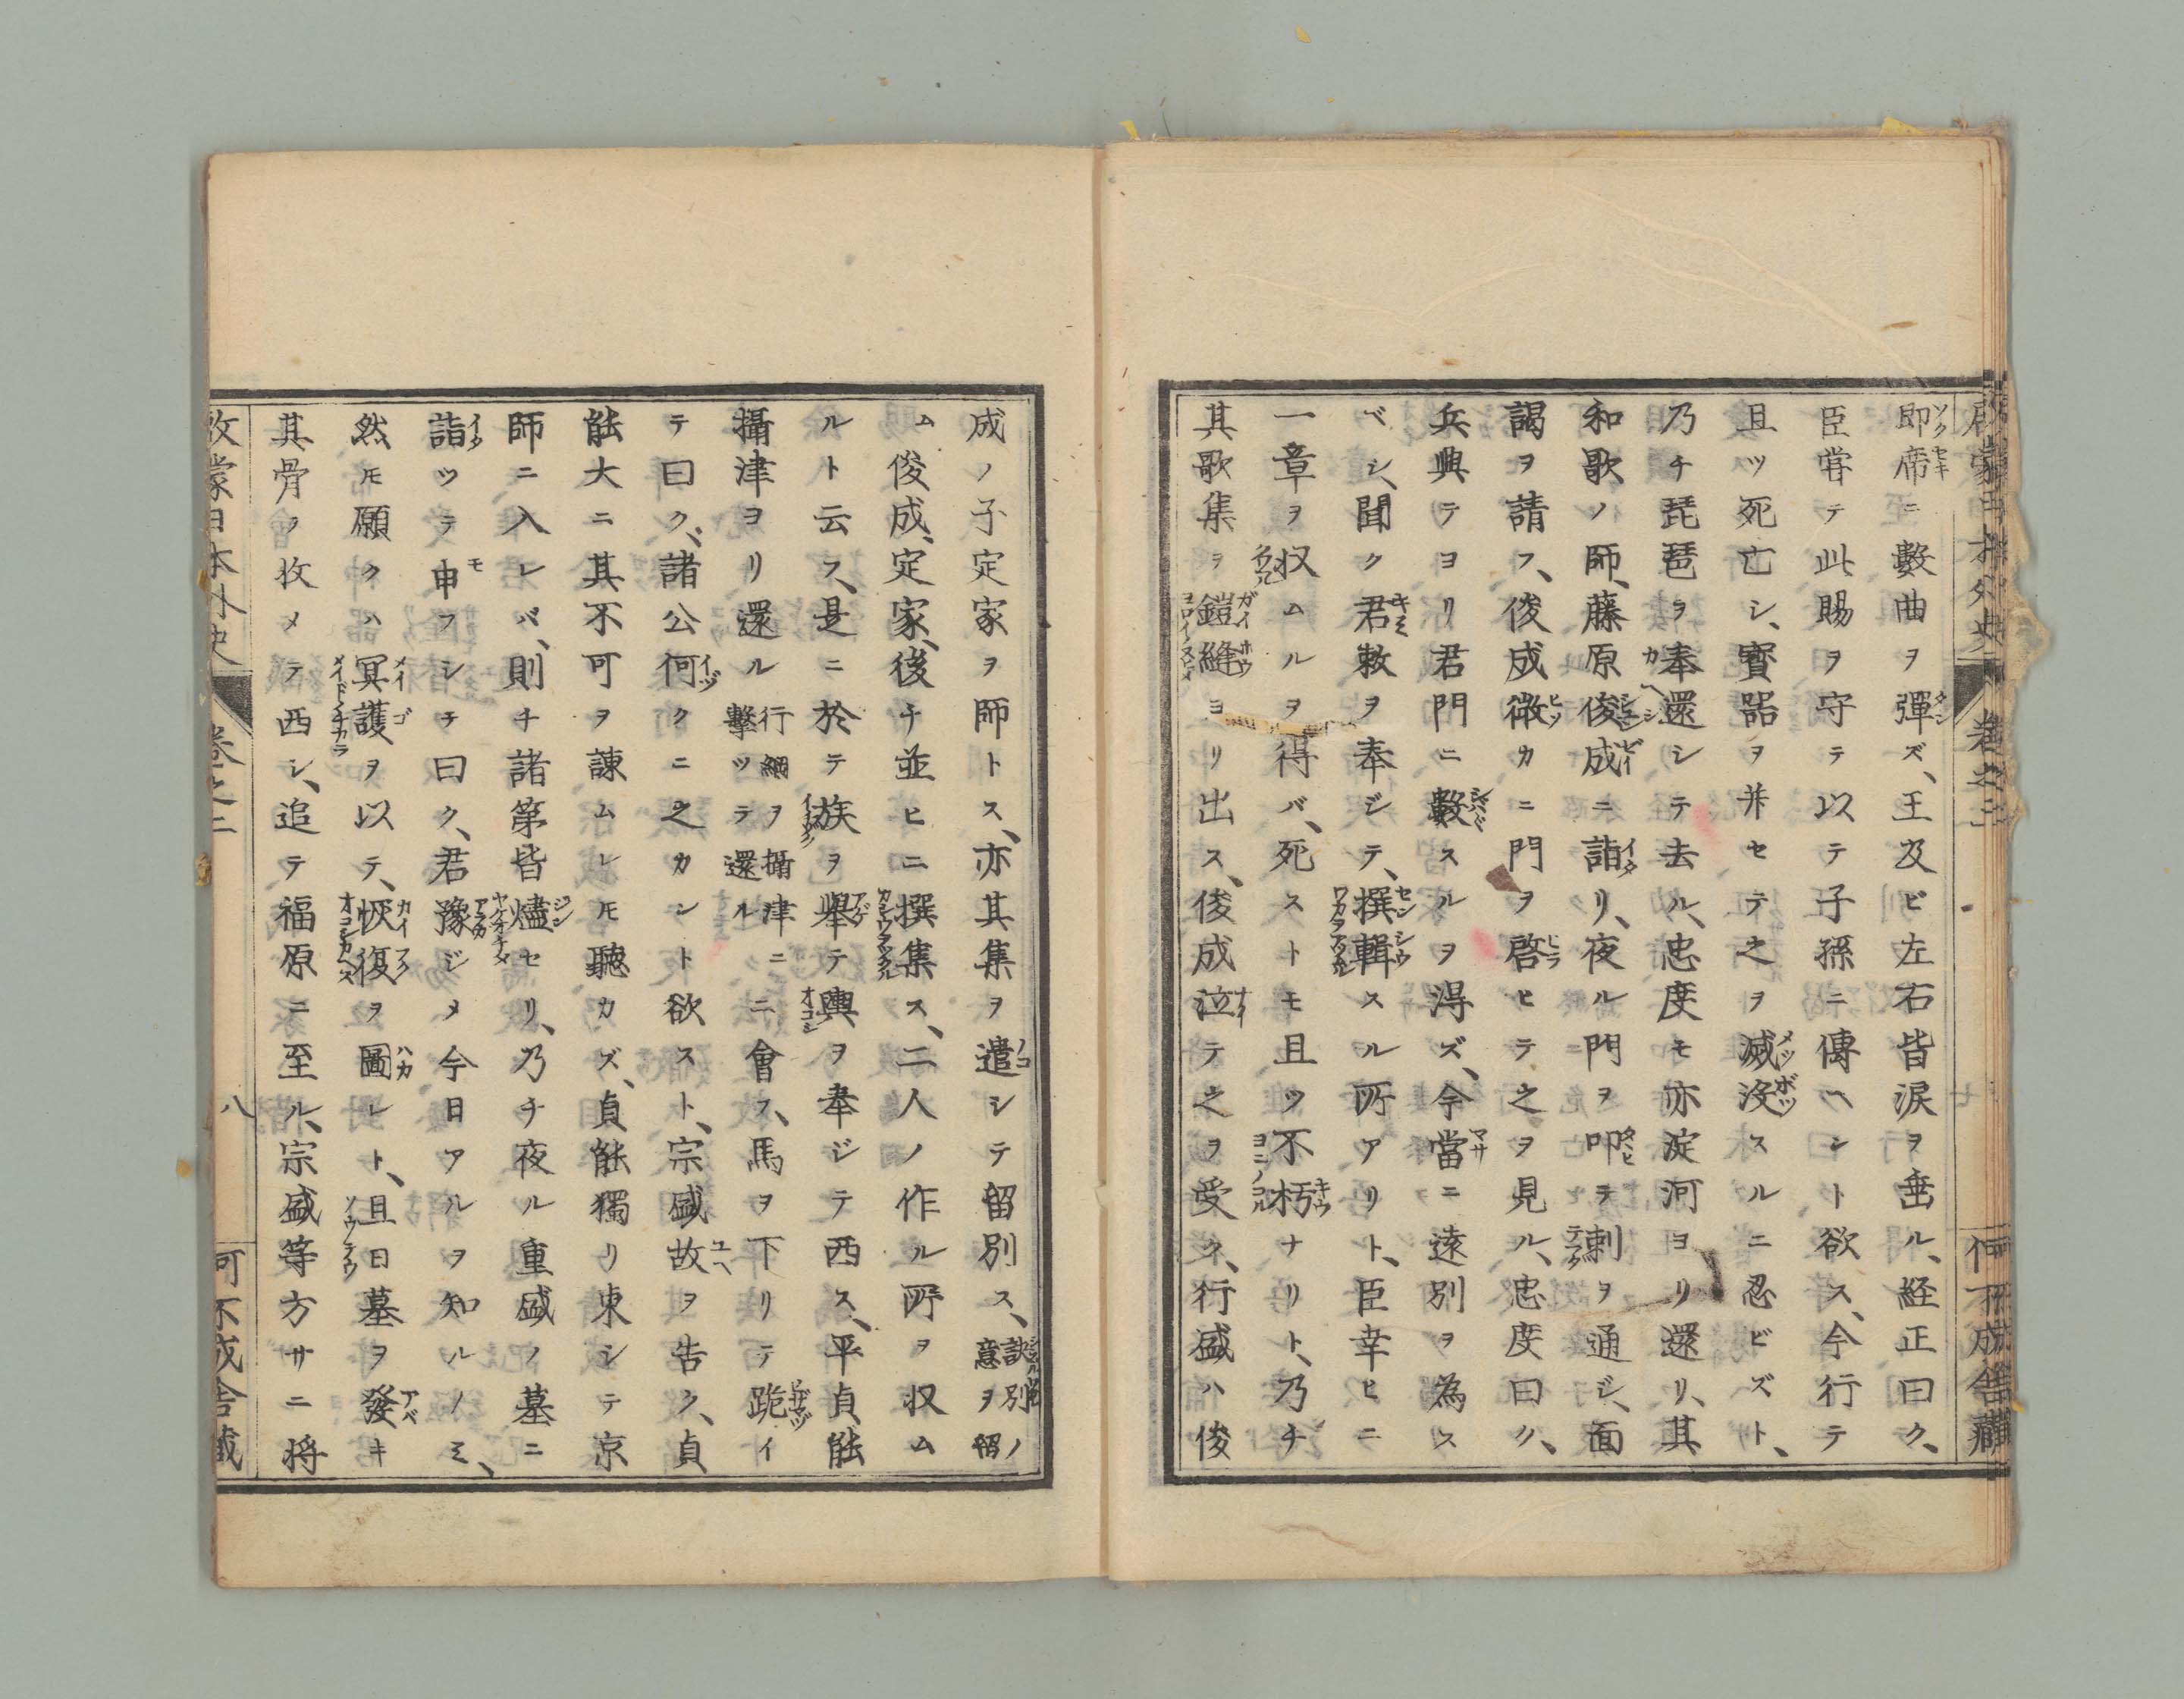 即席ニ數曲ヲ彈ズ、王及ビ左右皆涙ヲ垂ル、経正曰ク、
臣甞テ此賜ヲ守テ以テ子孫ニ傳ヘント欲ス、今行テ
且ツ死亡シ、寳噐ヲ并セテ之ヲ滅没スルニ忍ビズト、
乃チ琵琶ヲ奉還シテ去ル、忠度モ亦淀河ヨリ還リ、其
和歌ノ師、藤原俊成ニ詣リ、夜ル門ヲ叩テ刺ヲ通ジ、面
謁ヲ請フ、俊成微カニ門ヲ啓ヒテ之ヲ見ル、忠度曰ク、
兵興テヨリ君門ニ數スルヲ得ズ、今當ニ遠別ヲ為ス
ベシ、聞ク君敕ヲ奉ジテ、撰輯スル所アリト、臣幸ヒニ
一章ヲ収ムルヲ得バ、死ストモ且ツ不朽ナリト、乃チ
其歌集ヲ鎧縫ヨリ出ス、俊成泣テ之ヲ受ク、行盛ハ俊
成ノ子定家ヲ師トス、亦其集ヲ遣シテ留別ス、訣別ノ意ヲ留
ム俊成、定家、後チ並ヒニ撰集ス、二人ノ作ル所ヲ収ム
ルト云フ、是ニ於テ族ヲ擧テ輿ヲ奉ジテ西ス、平貞能
攝津ヨリ還ル行綱ヲ攝津ニ擊ツテ還ルニ會フ、馬ヲ下リテ跪イ
テ曰ク、諸公何クニ之カント欲スト、宗盛故ヲ告ク、貞
能大ニ其不可ヲ諫ムレモ聽カズ、貞能獨リ東シテ京
師ニ入レバ、則チ諸第皆燼セリ、乃チ夜ル重盛ノ墓ニ
詣ツテ申フシチ曰ク、君豫ジメ今日アルヲ知ルノミ、
然モ願クハ冥護ヲ以テ、恢復ヲ圖レト、且日墓ヲ發キ
其骨ヲ收メテ西シ、追テ福原ニ至ル、宗盛等方サニ将
卷之二
八